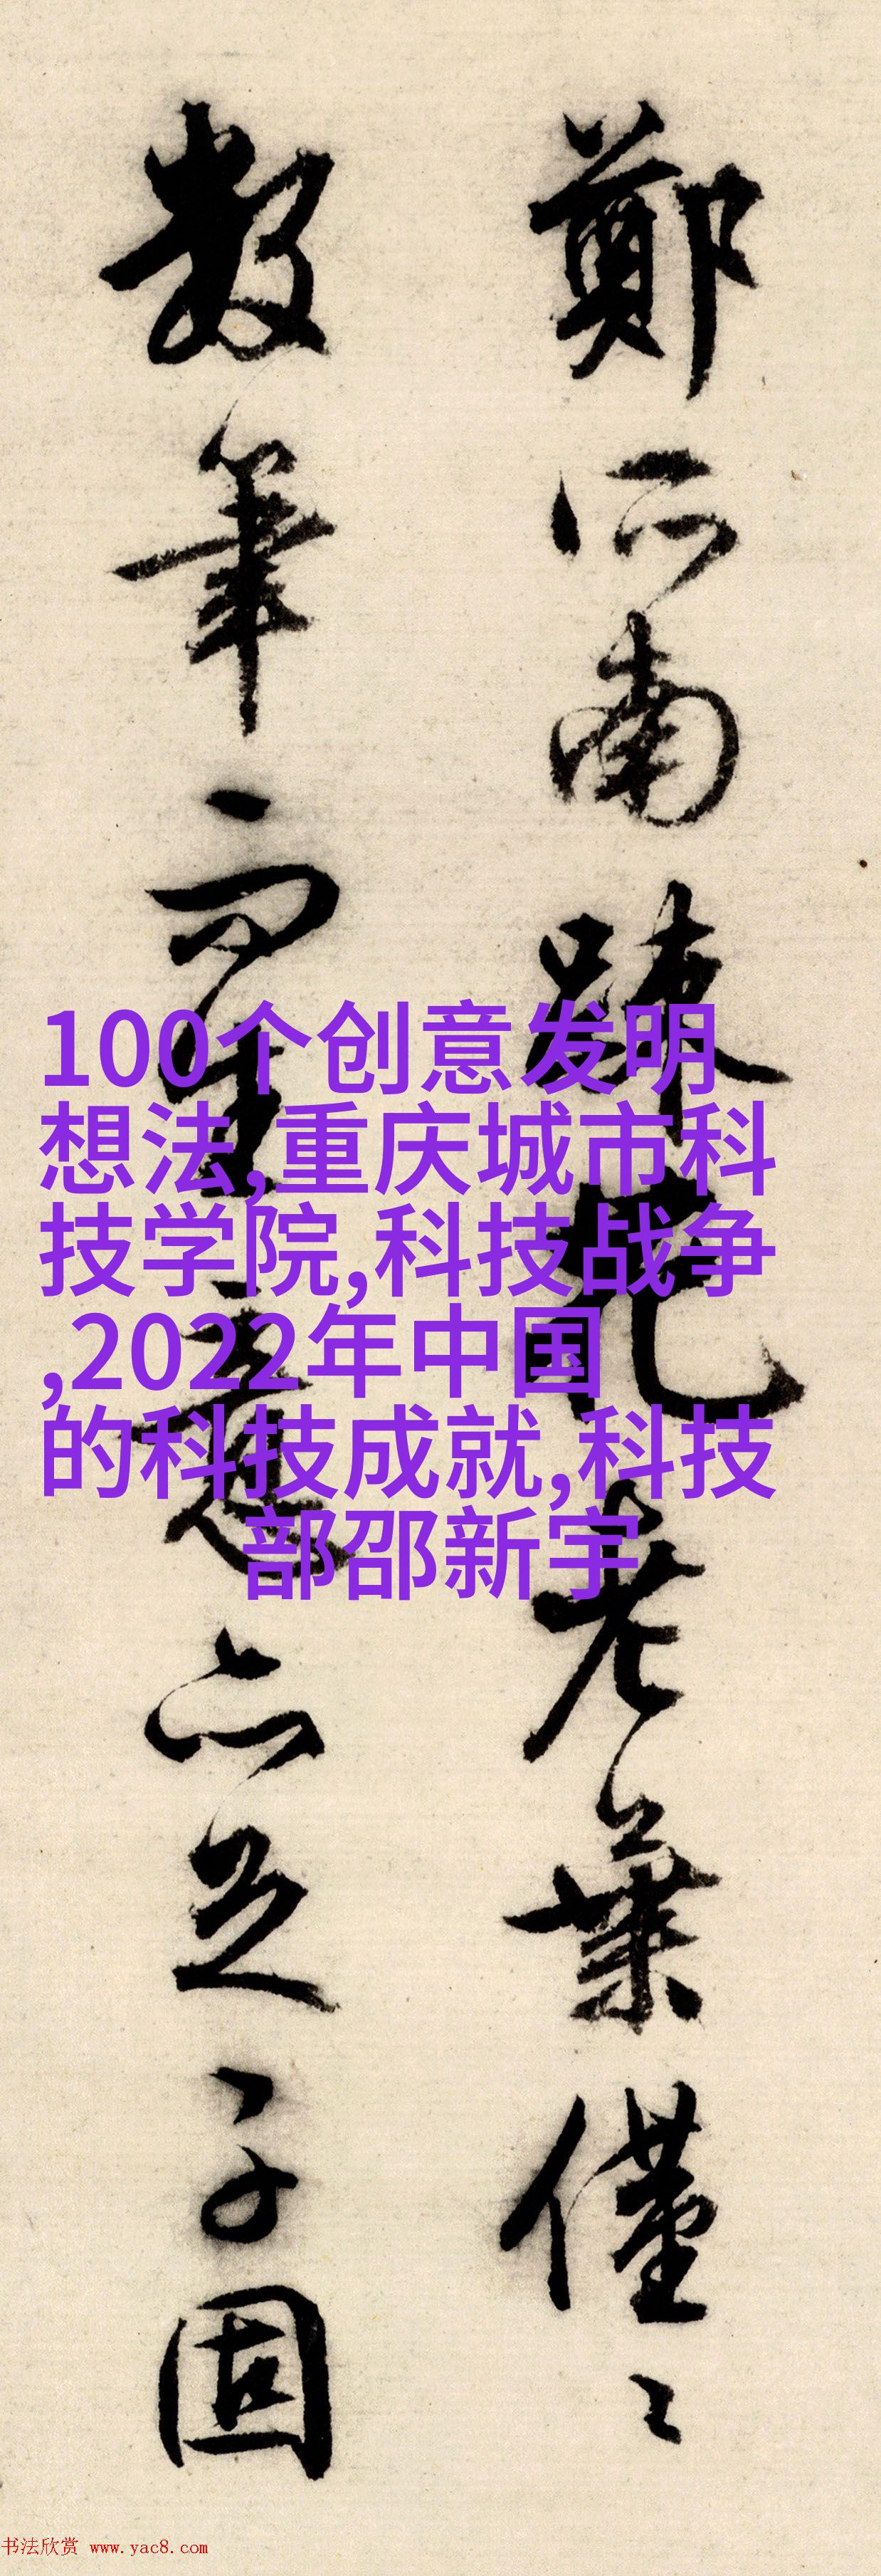 鄭所南疎花老葉僅〻
數筆而生意亦足子固
100个创意发明
想法,重庆城市科
技学院,科技战争
,2022年中国
的科技成就,科技
部邵新宇
书法欣赏 www.yac8.com